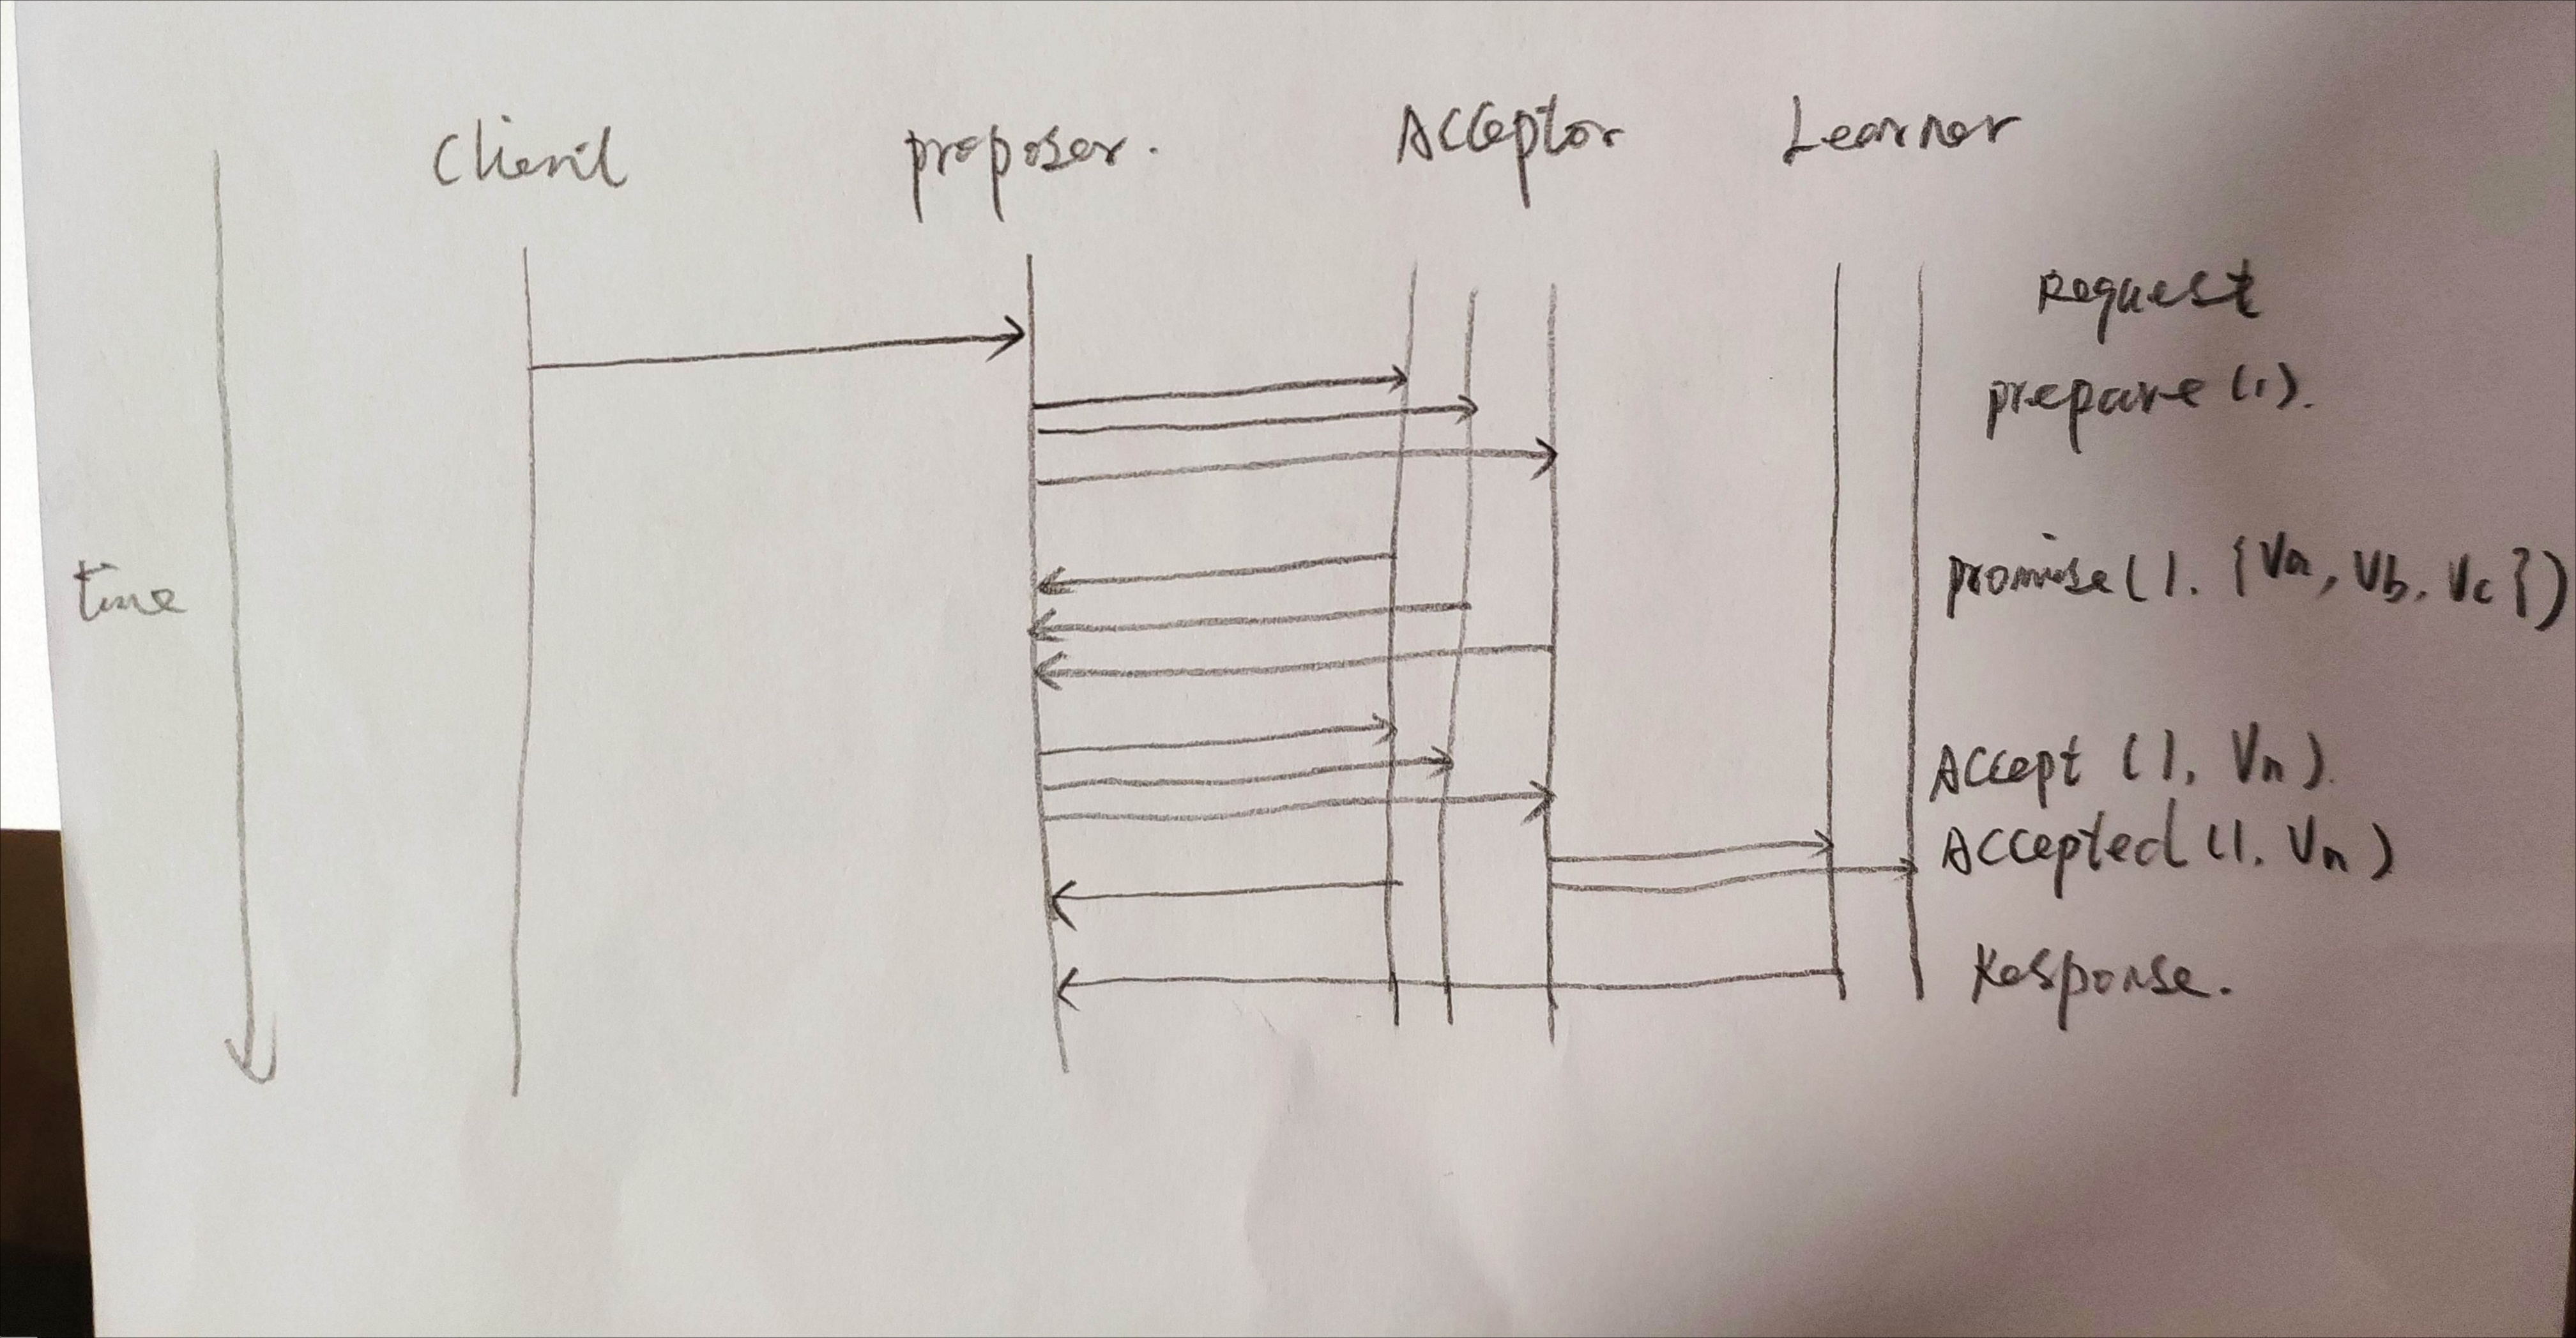 Client proposer. Acceptor Learner
Request
prepare (1).
time
promise (1. {Va, Vb, Vc})
Accept (1, Vn).
Accepted (1. Vn)
Response.